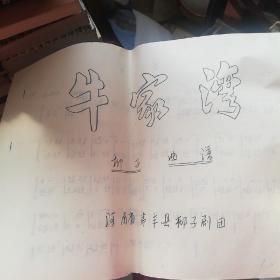 牛家湾
柳子 曲谱
江苏省丰县柳子剧团